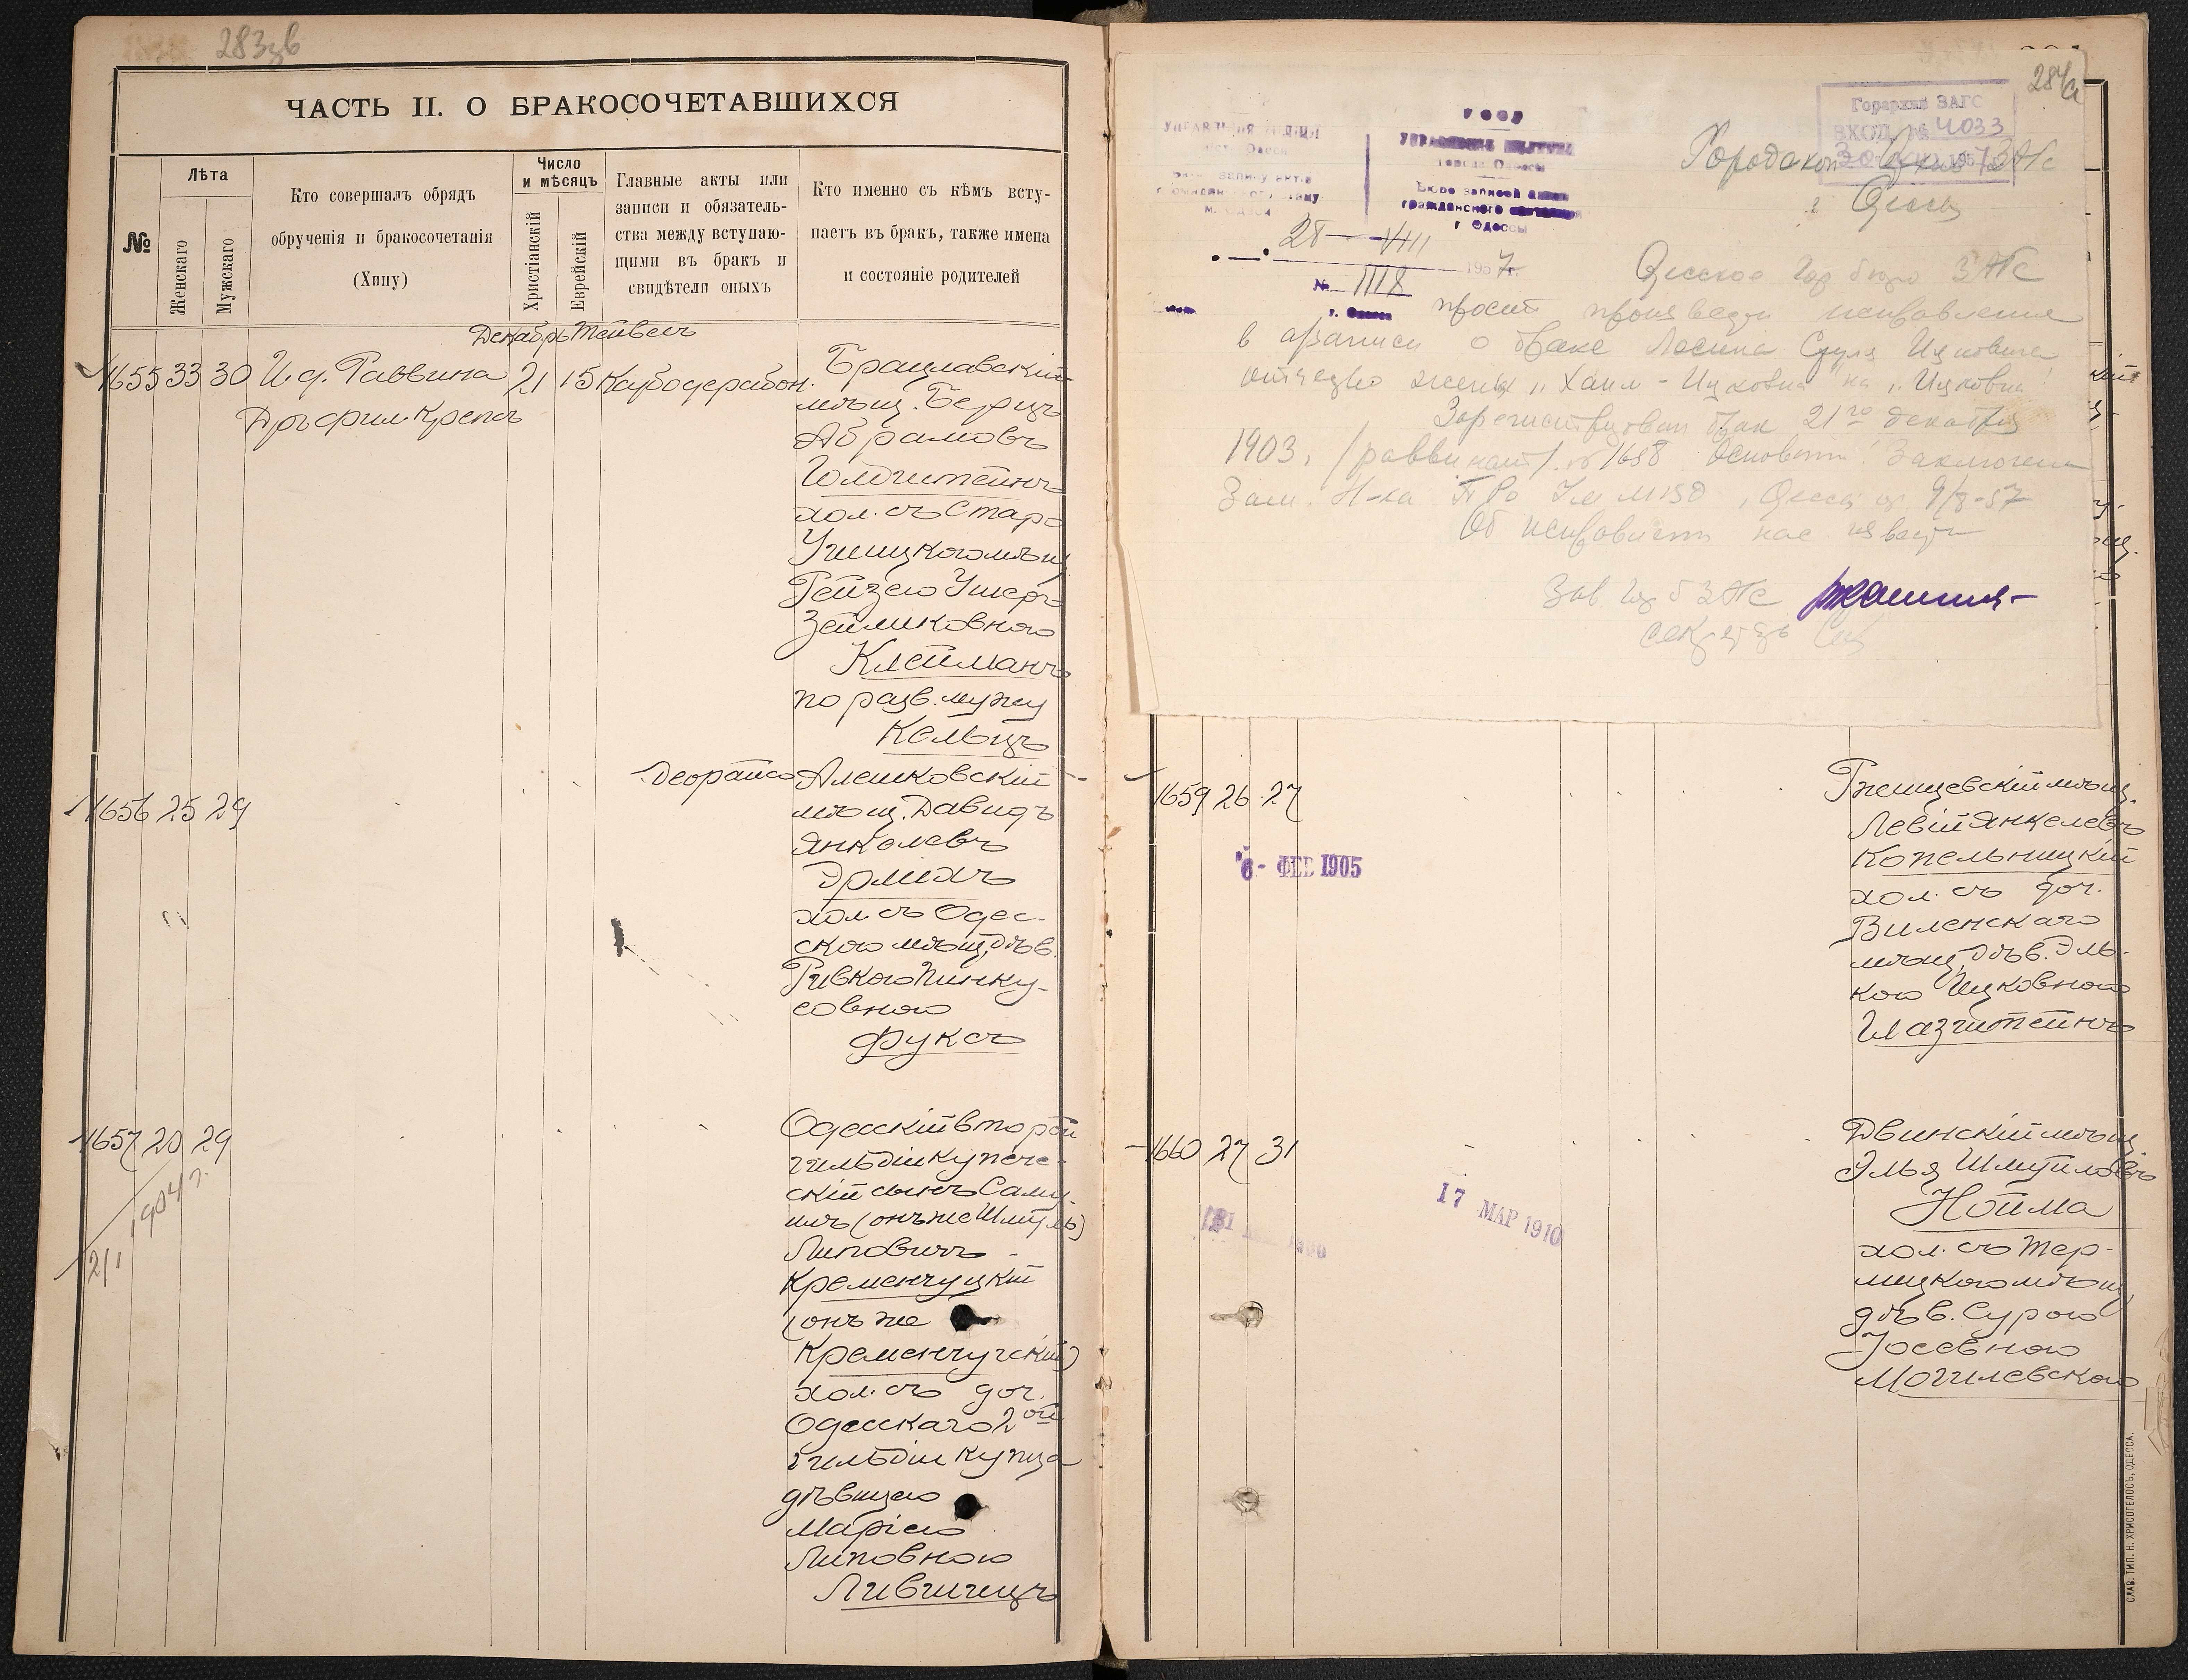 283зв
ЧАСТЬ II. О БРАКОСОЧЕТАВШИХСЯ
№
Лѣта
Женскаго
Мужскаго
Кто совершалъ обрядъ
обрученія и бракосочетанія
(Хипу)
Число
и мѣсяцъ
Христіанскій
Еврейскій
Главные акты или
записи и обязатель-
ства между вступаю-
щими въ бракъ и
свидѣтели оныхъ
Кто именно съ кѣмъ всту-
паетъ въ бракъ, также имена
и состояніе родителей
Декабрь Тейвесъ
1655 33 30 И.д. Раввина 21 15
Дръ фил. Крепсъ
Брацлавскій
мѣщ. Берцъ
Абрамовъ
Голдштейнъ
хол. съ Старо
Ушицкою мѣщ
Рейзею Ушер
Зейликовною
Клейманъ
по разв. мужу
Кельцъ
1656 25 29
Деорайсо
Алешковскій
мѣщ. Давидъ
Янкелевъ
Эрлихъ
хол. съ Одес-
скою мѣщ. дѣв.
Ривкою Пинку-
совною
Фуксъ
1657 20 29
1904 г.
2/1
Одесскій второй
гильдіи купече-
скій сынъ Саму-
илъ (онъ же Шмуль)
Липовичъ
Кременчуцкій
(онъ же
Кременчугскій)
хол. съ доч.
Одесскаго 2ой
гильдіи купца
дѣвицею
Маріею
Липовною
Лившицъ
284а
Горархив ЗАГС
ВХОД. № 4033
Городской Архив ЗАГС
г Одессы
УССР
города Одессы
Бюро записей актов
гражданского состояния
г Одессы
28 VIII 1957 г.
№ 1118
г. Одесса
Одесское Гор бюро ЗАГС
просит произвести исправления
в а/записи о браке Лесина Сруля Ицковича
отчество жены „Хаим-Ицковна" на „Ицковна"
Зарегистрирован брак 21го декабря
1903. /раввинат/. № 1658 Основание: Заключение
Зам. Н-ка
9/8-57
Об исправлении нас известить
Зав Гор б ЗАГС
секретарь
1659 26 27
6 - ФЕВ 1905
Ржищевскій мѣщ.
Левій Янкелевъ
Копельницкій
хол. съ доч.
Виленскаго
мѣщ. дѣв. Эль-
кою Ицковною
Глазштейнъ
1660 27 31
17 МАР 1910
Двинскій мѣщ
Элья Шмуйловъ
Нойма
хол. съ Тер-
лицкою мѣщ.
дѣв. Сурою
Іосевною
Могилевскою
СЛАВ. ТИП. Н. ХРИСОГЕЛОСЪ, ОДЕССА.